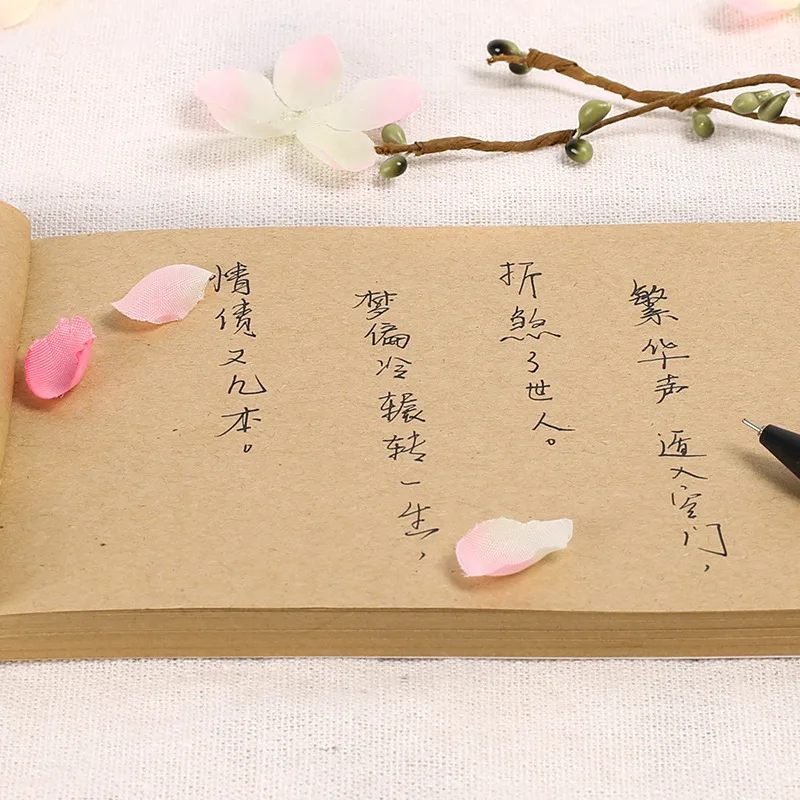 繁华声 遁入空门，
折煞了世人。
梦偏冷 辗转一生，
情债又几本。